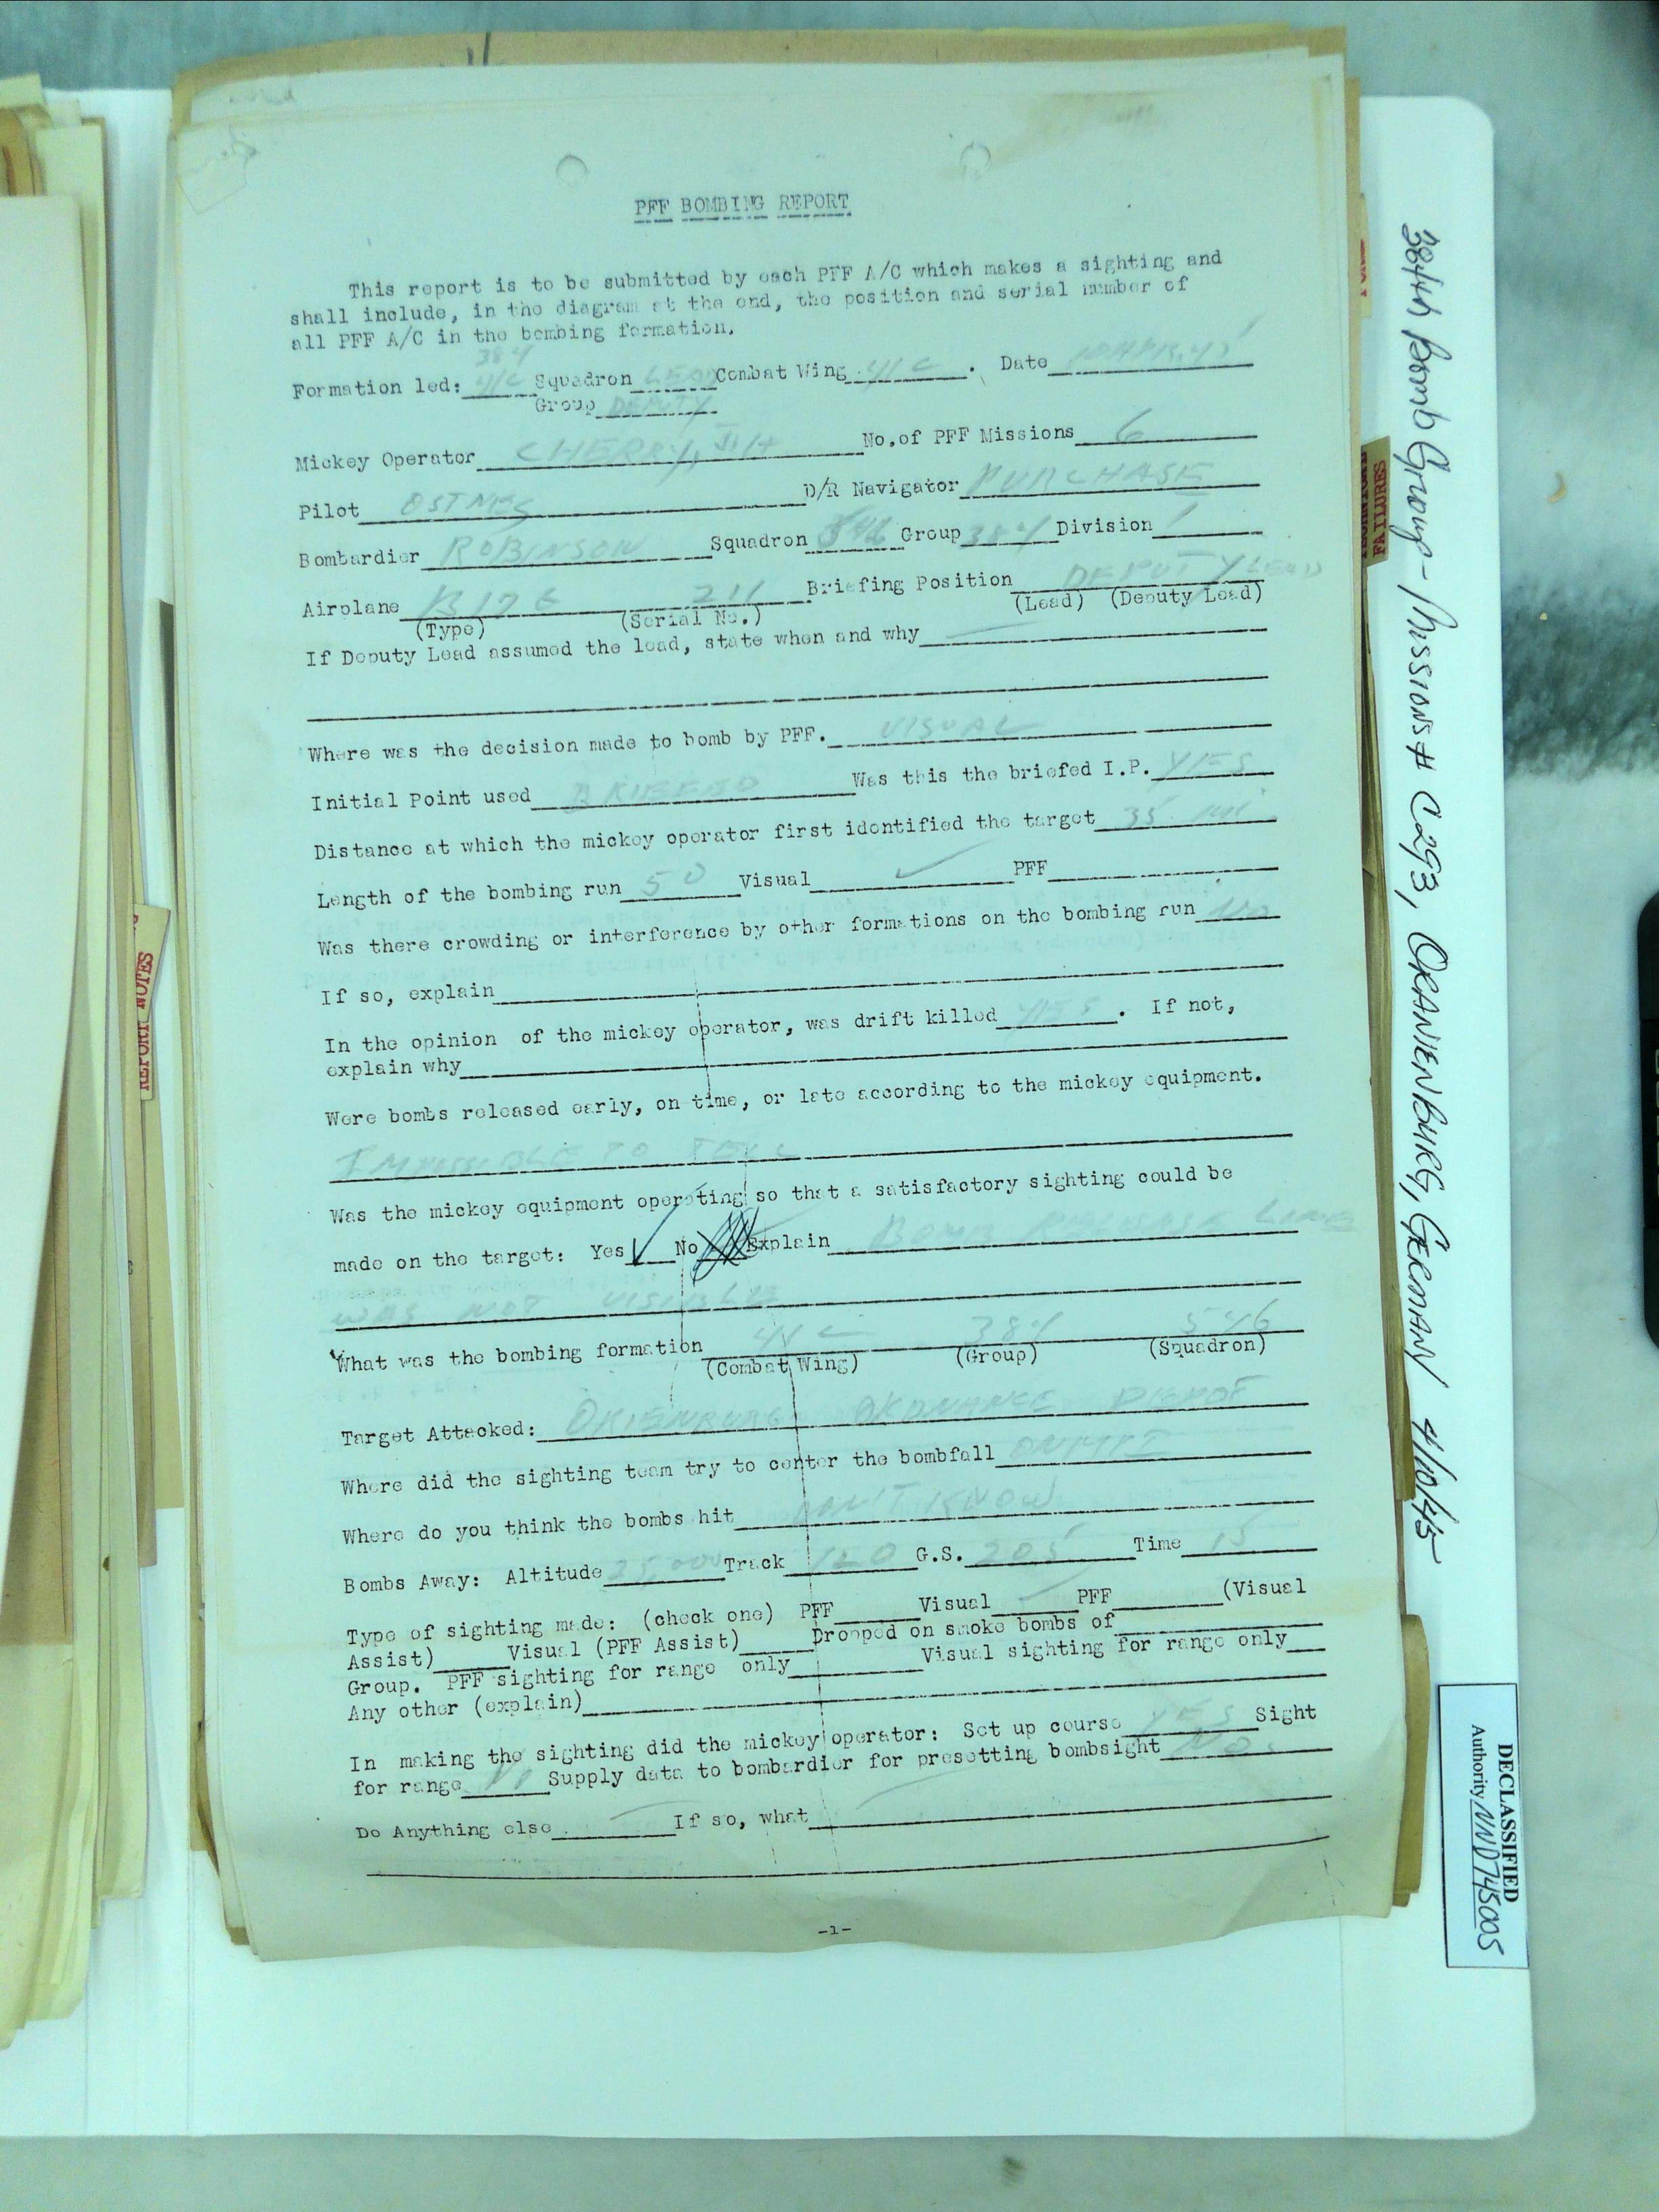 PFF BOMBING REPORT
This report is to be submitted by each PFF A/C which makes a sighting and
shall include, in the diagram at the end, the position and serial number of
all PFF A/C in the bombing formation.
384
Formation led: 41C Squadron LEAD Combat Wing 41 C . Date 10 APR. 45
Group DEPUTY
Mickey Operator CHERRY, J.H No. of PFF Missions 6
Pilot OSTNES D/R Navigator PURCHASE
Bombardier ROBINSON Squadron 546 Group 384 Division 1
Airplane B17G 211 Briefing Position DEPUTY LEAD
(Type) (Serial No.) (Lead) (Deputy Lead)
If Deputy Lead assumed the lead, state when and why
Where was the decision made to bomb by PFF. VISUAL
Initial Point used BRIEFED Was this the briefed I.P. YES
Distance at which the mickey operator first identified the target 35 mi
Length of the bombing run 50 Visual ✓ PFF
Was there crowding or interference by other formations on the bombing run no
If so, explain
In the opinion of the mickey operator, was drift killed YES . If not,
explain why
Were bombs released early, on time, or late according to the mickey equipment.
IMPOSSIBLE TO TELL
Was the mickey equipment operating so that a satisfactory sighting could be
made on the target: Yes ✓ No Explain BOMB RELEASE LINE
WAS NOT VISIBLE
What was the bombing formation 41 C 384 546
(Combat Wing) (Group) (Squadron)
Target Attacked: ORIENBURG ORDNANCE DEPOT
Where did the sighting team try to center the bombfall ON MPI
Where do you think the bombs hit DON'T KNOW
Bombs Away: Altitude 25,000 Track 120 G.S. 205 Time 15
Type of sighting made: (check one) PFF Visual ✓ PFF (Visual
Assist) Visual (PFF Assist) Dropped on smoke bombs of
Group. PFF sighting for range only Visual sighting for range only
Any other (explain)
In making the sighting did the mickey operator: Set up course YES Sight
for range NO Supply data to bombardier for presetting bombsight NO.
Do Anything else If so, what
-1-
384th Bomb Group - Mission # C293, ORANIENBURG, GERMANY 4/10/45
DECLASSIFIED
Authority NND745005
FAILURES
REPORT NOTES